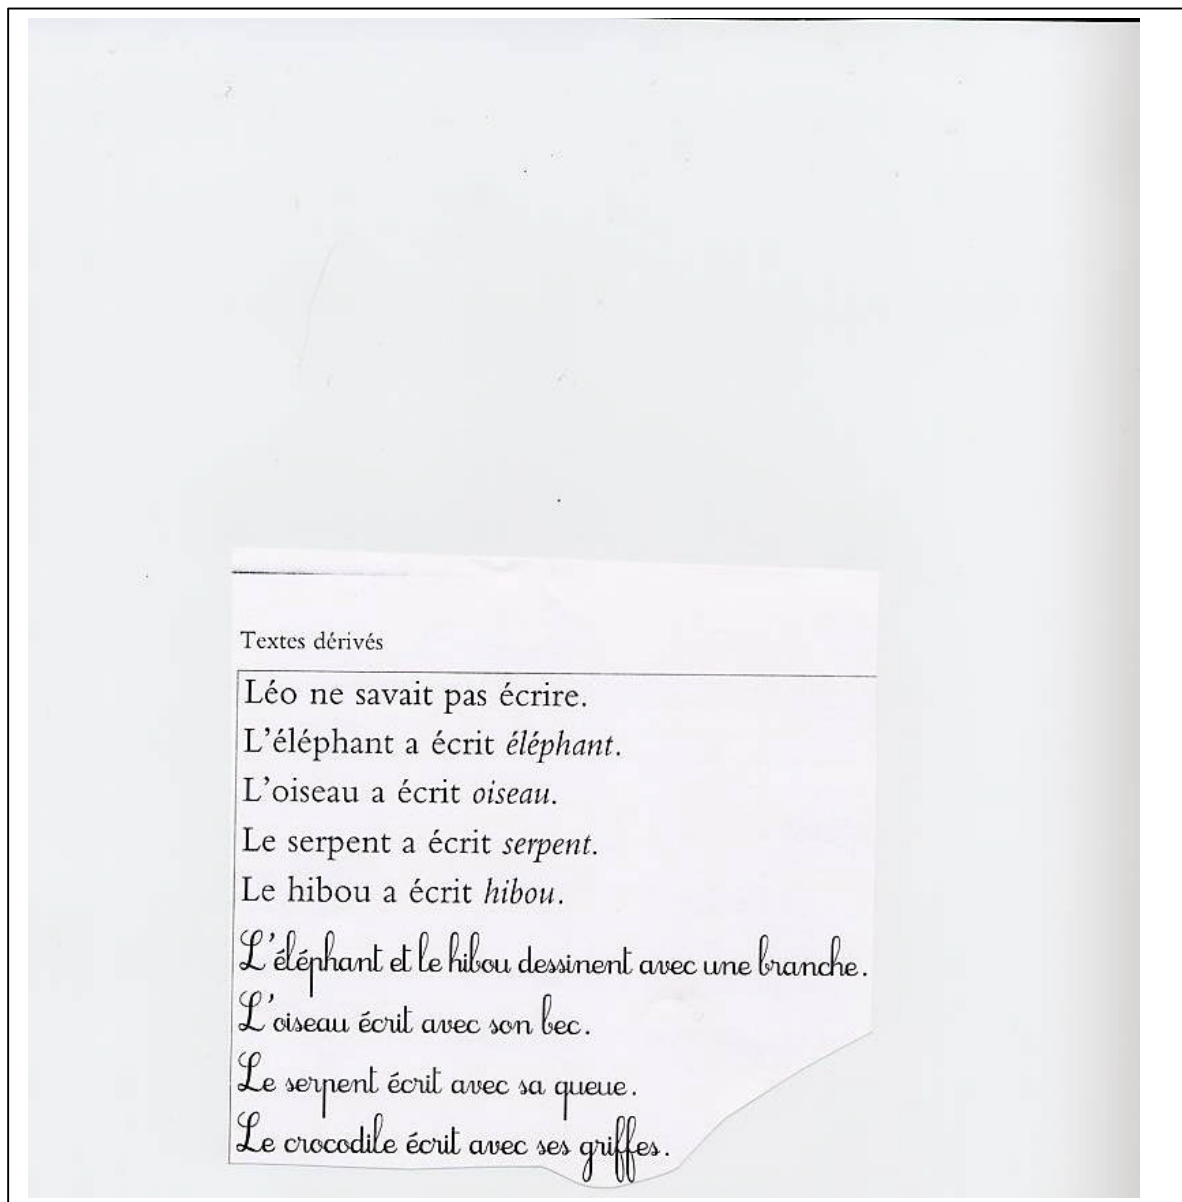 Textes dérivés
Léo ne savait pas écrire.
L'éléphant a écrit éléphant.
L'oiseau a écrit oiseau.
Le serpent a écrit serpent.
Le hibou a écrit hibou.
L'éléphant et le hibou dessinent avec une branche.
L'oiseau écrit avec son bec.
Le serpent écrit avec sa queue.
Le crocodile écrit avec ses griffes.